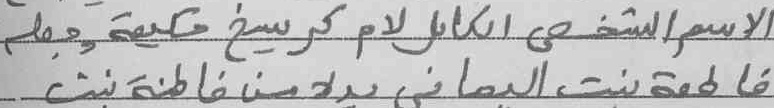 الاسم الشخصي الكامل لام كريسخ حكيمة وجعله
فاطمة بنت اليماني بدلا من فاطنة بنت